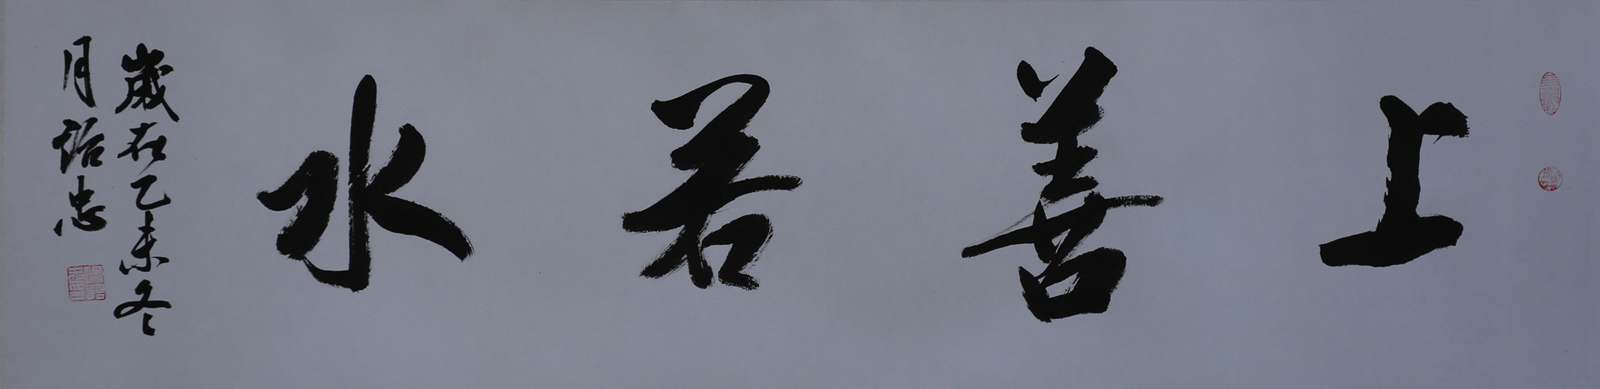 上善若水
歲在乙未冬
月詒忠